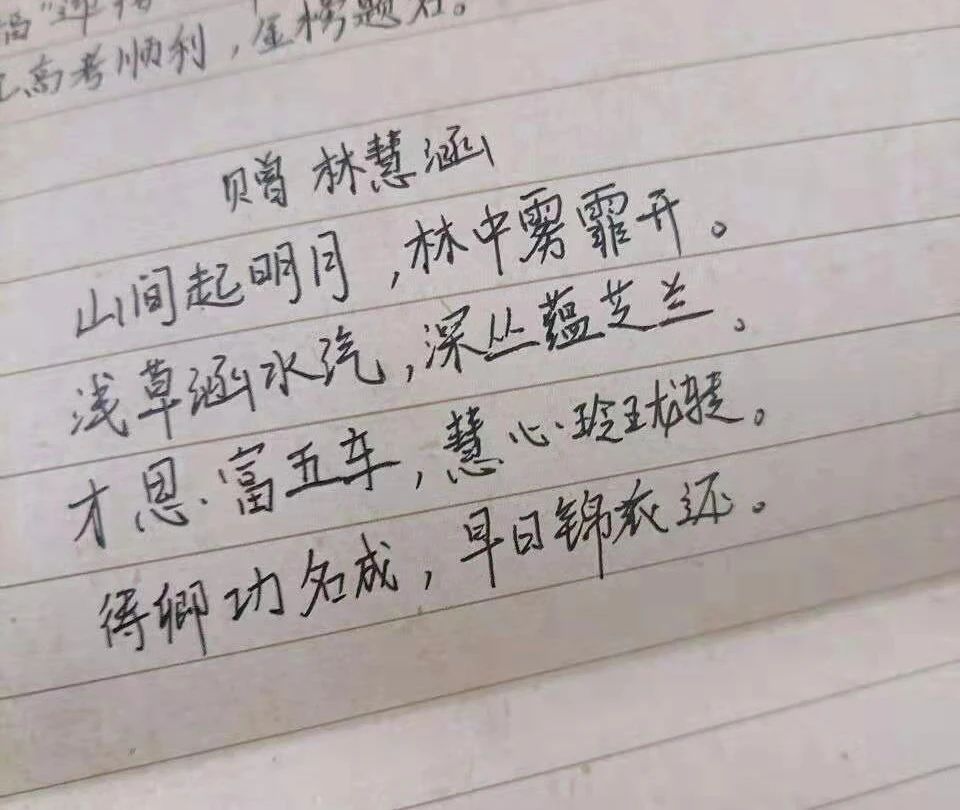 高考顺利，金榜题名。
赠林慧涵
山间起明月，林中雾霏开。
浅草涵水汽，深丛蕴芝兰。
才思富五车，慧心玲珑。
得卿功名成，早日锦衣还。